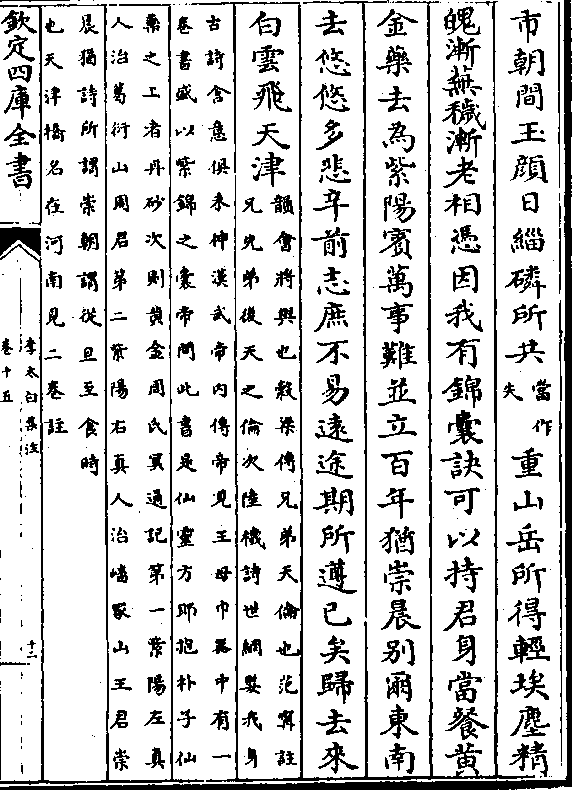 市朝間玉顔日緇磷所共當作失重山岳所得輕埃塵精
魄漸蕪穢漸老相憑因我有錦囊訣可以持君身當餐黄
金藥去為紫陽賓萬事難並立百年猶崇晨别爾東南
去悠悠多悲辛前志庶不易逺途期所遵已矣歸去來
白雲飛天津
韻會將與也榖梁傳兄弟天倫也范甯註
兄先弟後天之倫次陸機詩世網嬰我身
古詩含意俱未伸漢武帝内傳帝見王母巾器中有一
卷書盛以紫錦之囊帝問此書是仙靈方耶抱朴子仙
藥之上者丹砂次則黄金周氏冥通記第一紫陽左真
人治葛衍山周君第二紫陽右真人治嶓冢山王君崇
晨猶詩所謂崇朝謂從旦至食時
也天津橋名在河南見二卷註
欽定四庫全書
李太白集注
卷十五
十二